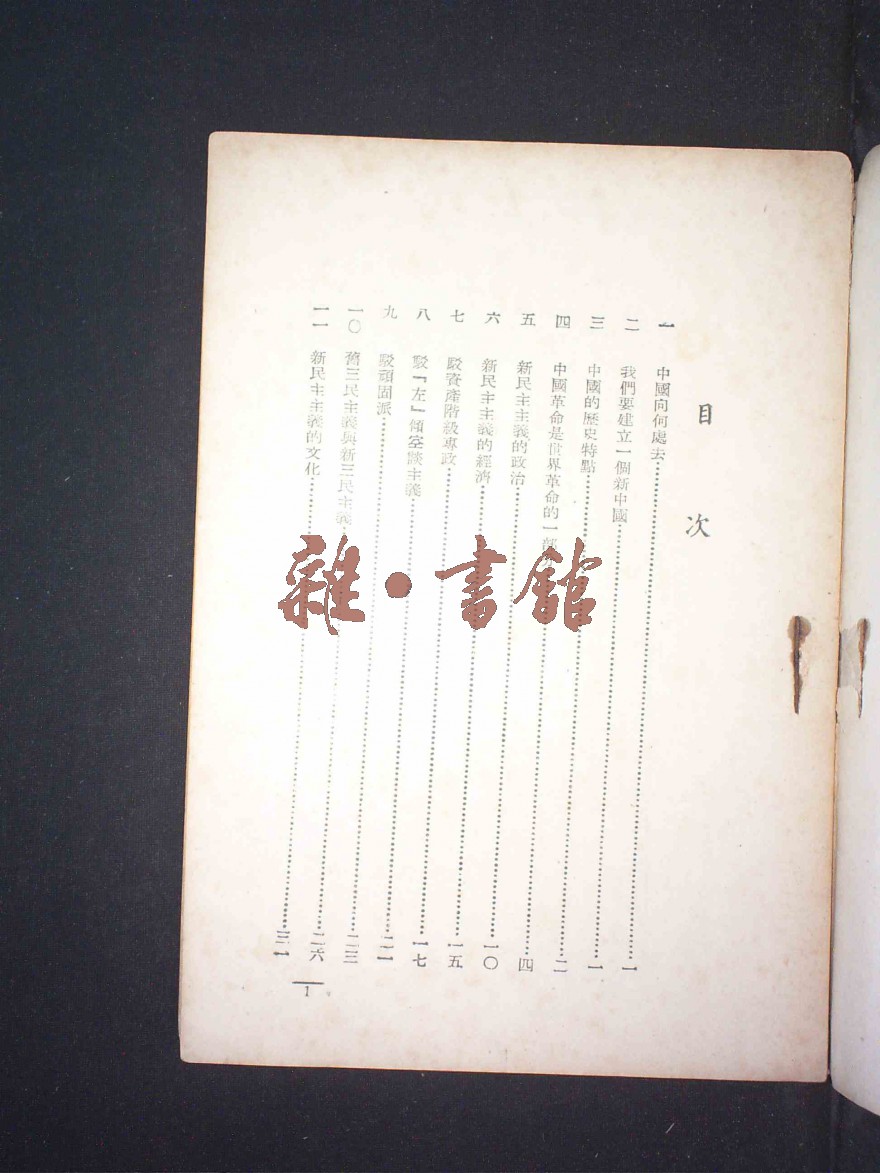 目次
一 中國向何處去……一
二 我們要建立一個新中國……一
三 中國的歷史特點……二
四 中國革命是世界革命的一部分……四
五 新民主主義的政治……一〇
六 新民主主義的經濟……一五
七 駁資產階級專政……一七
八 駁『左』傾空談主義……二一
九 駁頑固派……二三
一〇 舊三民主義與新三民主義……二六
一一 新民主主義的文化……三一
1
雜·書館